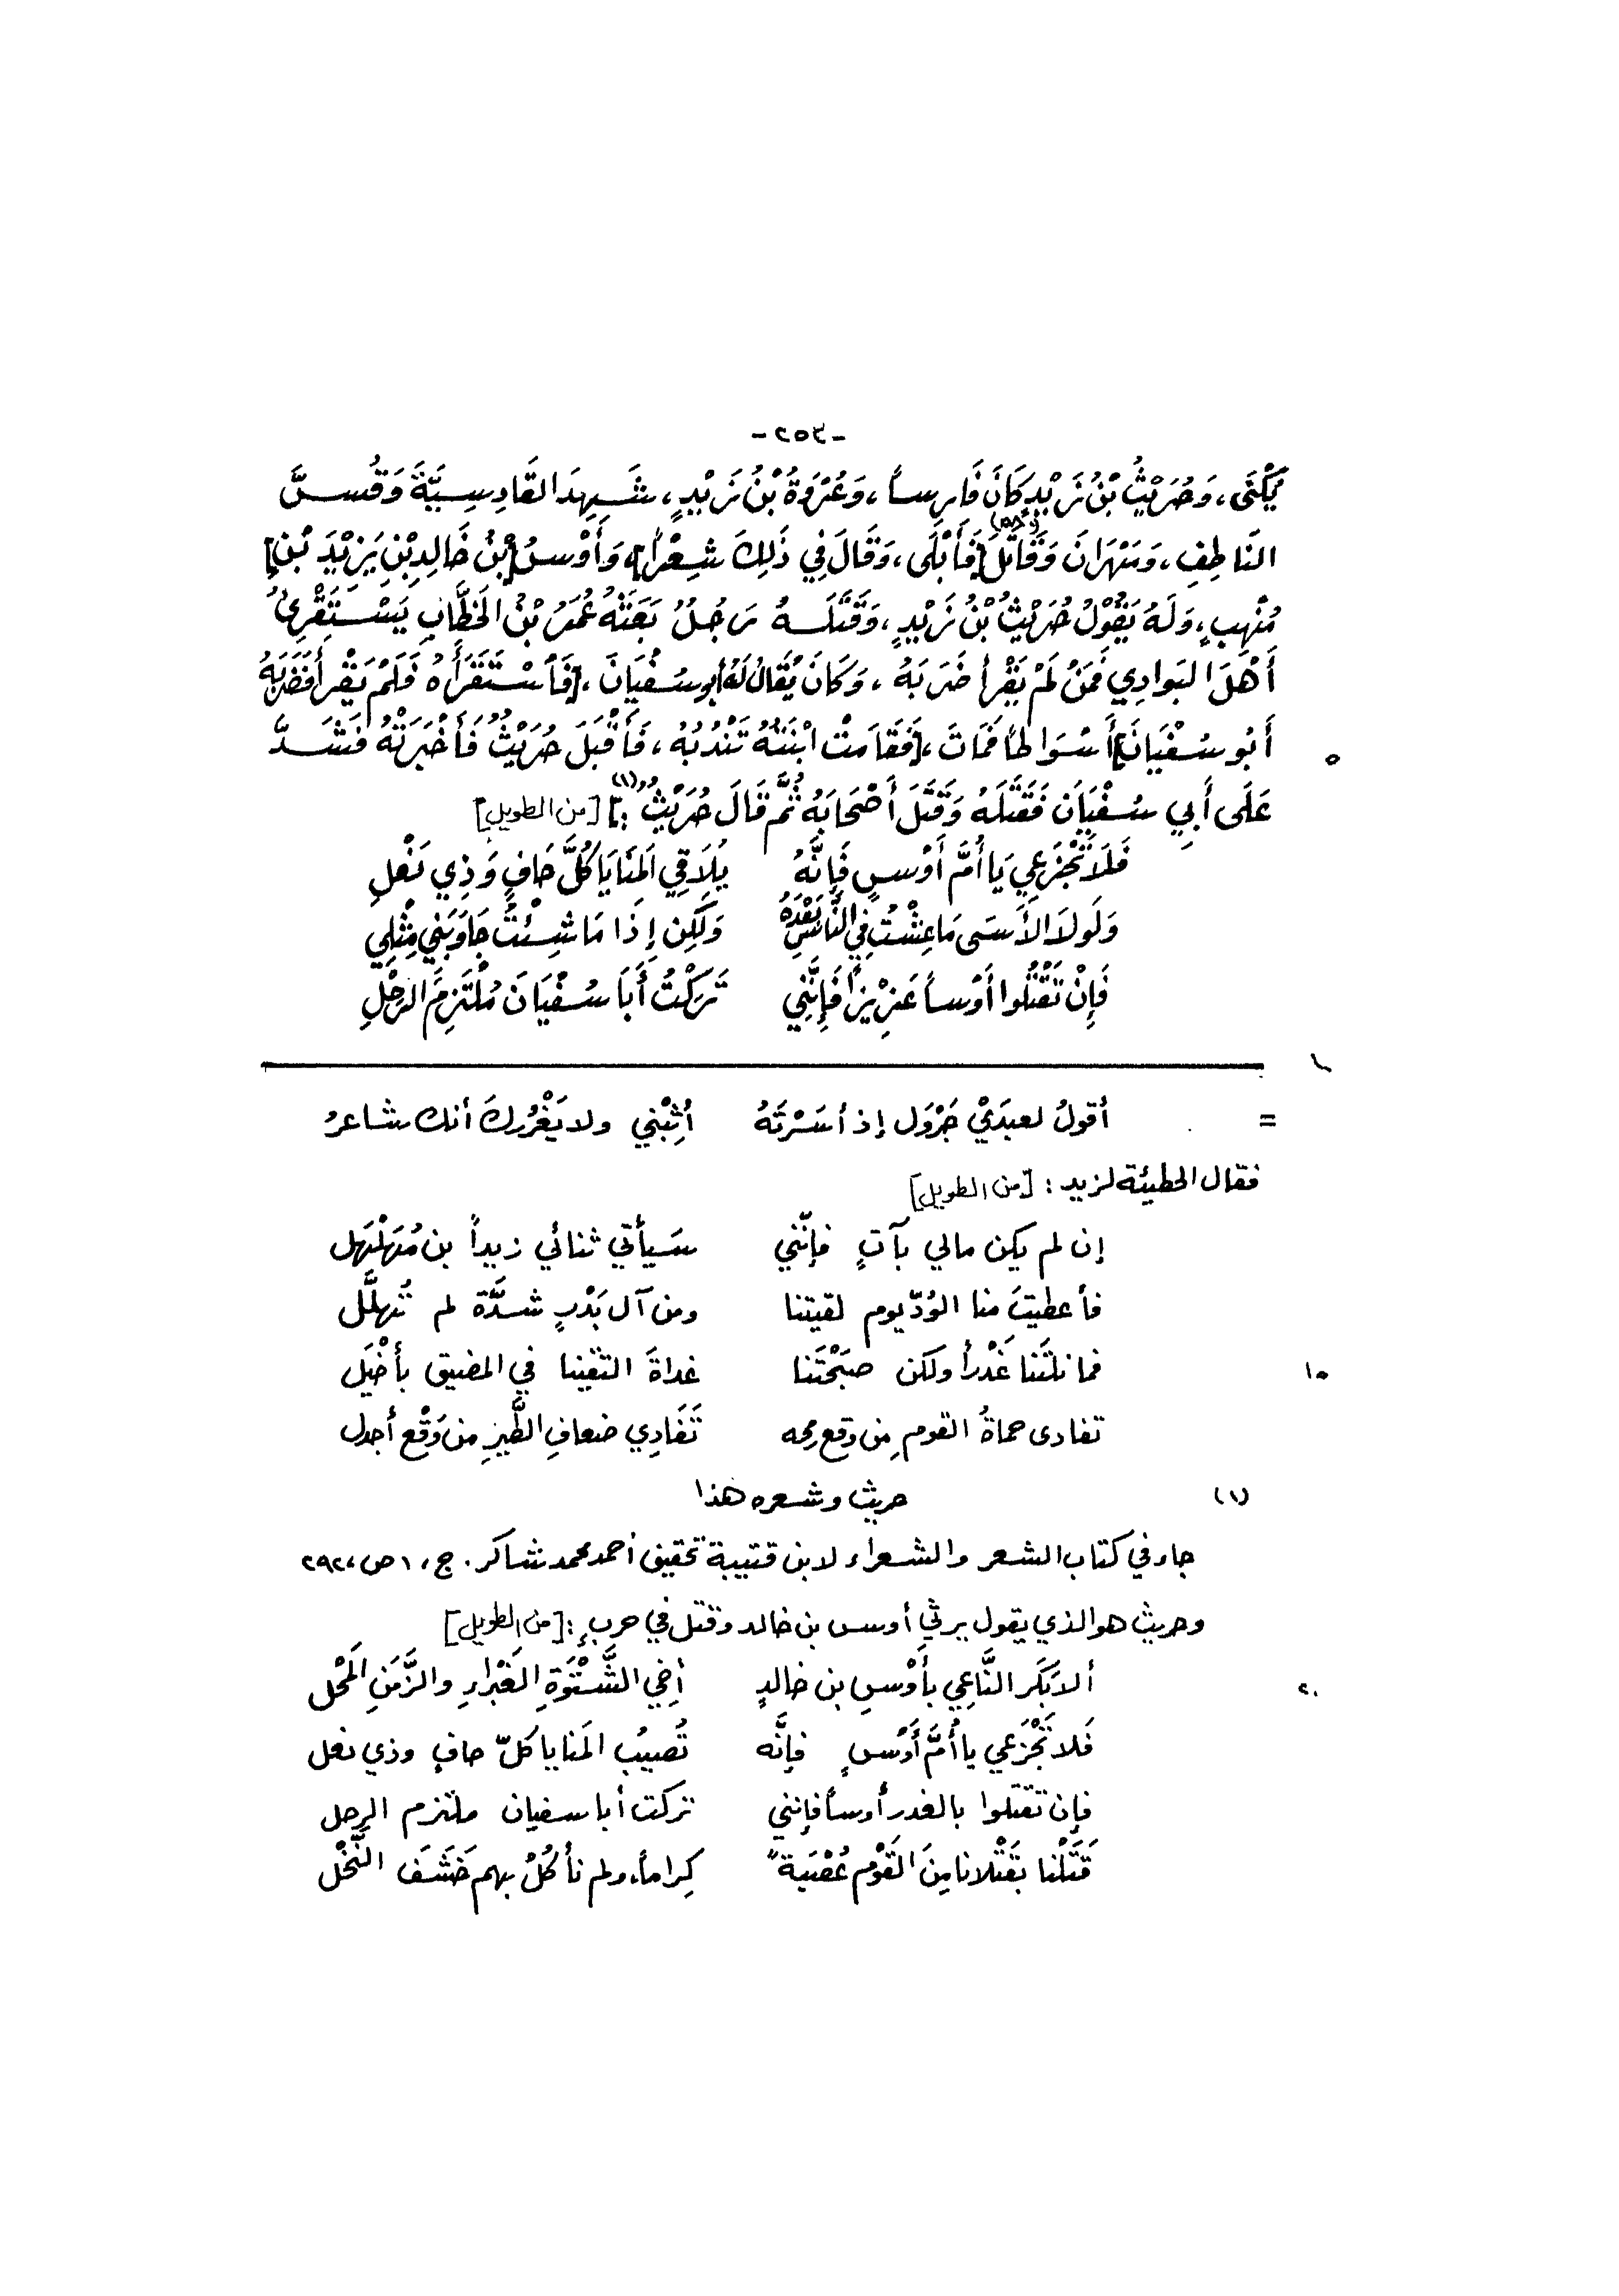 -٢٥٣-
يُكْنَى، وَحُرَيْثُ بْنُ زَيْدٍ كَانَ فَارِساً، وَعُرْوَةُ بْنُ زَيْدٍ، شَهِدَ القَادِسِيَّةَ وَقُسَّ
النَّاطِفِ، وَمِهْرَانَ وَقَاتَلَ [فَأَبْلَى، وَقَالَ فِي ذَلِكَ شِعْراً] وَأَوْسُ [بْنُ خَالِدِ بْنِ يَزِيْدَ بْنِ]
مُنْهِبٍ، وَلَهُ يَقُوْلُ حُرَيْثُ بْنُ زَيْدٍ، وَقَتَلَهُ رَجُلٌ بَعَثَهُ عُمَرُ بْنُ الخَطَّابِ يَسْتَقْرِئُ
أَهْلَ البَوَادِي فَمَنْ لَمْ يَقْرأ ضَرَبَهُ، وَكَانَ يُقَالُ لَهُ أَبُو سُفْيَانَ، [فَاسْتَقْرَأَهُ فَلَمْ يَقْرأ فَضَرَبَهُ
أَبُو سُفْيَانَ] أَسْوَاطاً فَمَاتَ، [فَقَامَتْ ابْنَتُهُ تَنْدُبُهُ، فَأَقْبَلَ حُرَيْثُ فَأَخْبَرَتْهُ فَشَدَّ
٥
عَلَى أَبِي سُفْيَانَ فَقَتَلَهُ وَقَتَلَ أَصْحَابَهُ ثُمَّ قَالَ حُرَيْثُ:] (١) [من الطويل]
فَلاَ تَجْزَعِي يَا أُمَّ أَوْسٍ فَإِنَّهُ يُلاَقِي المَنَايَا كُلُّ حَافٍ وَذِي نَعْلِ
وَلَولاَ الأَسَى مَا عِشْتُ فِي النَّاسِ بَعْدَهُ وَلَكِن إِذَا مَا شِئْتُ جَاوَبَنِي مِثْلِي
فَإِنْ تَقْتُلُوا أَوْساً عَزِيْزاً فَإِنَّنِي تَرَكْتُ أَبَا سُفْيَانَ مُلْتَزِمَ الرَحْلِ
= أقولُ لعبدَيْ جَرْوَل إذ أسَرْتَهُ أثِبْني ولا يَغْرُركَ أنك شاعرُ
فقال الحطيئة لزيد: [من الطويل]
إن لم يكن مالي بآتٍ فإنّني سَيأتي ثنائي زيداً بن مُهَلْهَل
فأعطيتَ منا الوُدّ يوم لقيتنا ومن آل بَدْرٍ شدَّة لم تُهلَّل
فما نلتَنا غَدْراً ولكن صبَحْتَنا غداةَ التقينا في المضيق بأخْيَل
١٥
تفادى حماةُ القومِ من وقع رمحه تَفَادِي ضعافِ الطَّيرِ من وَقْعِ أجدل
(١) حريث وشعره هذا
جاء في كتاب الشعر والشعراء لابن قتيبة تحقيق أحمد محمد شاكر. ج، ١ ص، ٢٩٢
وحريث هو الذي يقول يرثي أوس بن خالد وقتل في حربٍ: [من الطويل]
ألا بَكَر النَّاعِي بأَوْسِ بن خالدٍ أخِي الشَّتْوَةِ الغَبْراءِ والزَّمَنِ المَحْل
٢٠
فَلا تَجْزَعي يا أُمَّ أَوْسٍ فإنَّه تُصيبُ المَنايا كلّ حافٍ وذي نعل
فإن تقتلوا بالغدر أوساً فإنني تركت أبا سفيان ملتزم الرحل
قَتَلْنا بقَتْلانا مِنَ القَوْم عُصْبَةً كِراماً، ولم نأكُلْ بهم حَشَفَ النَّخْل